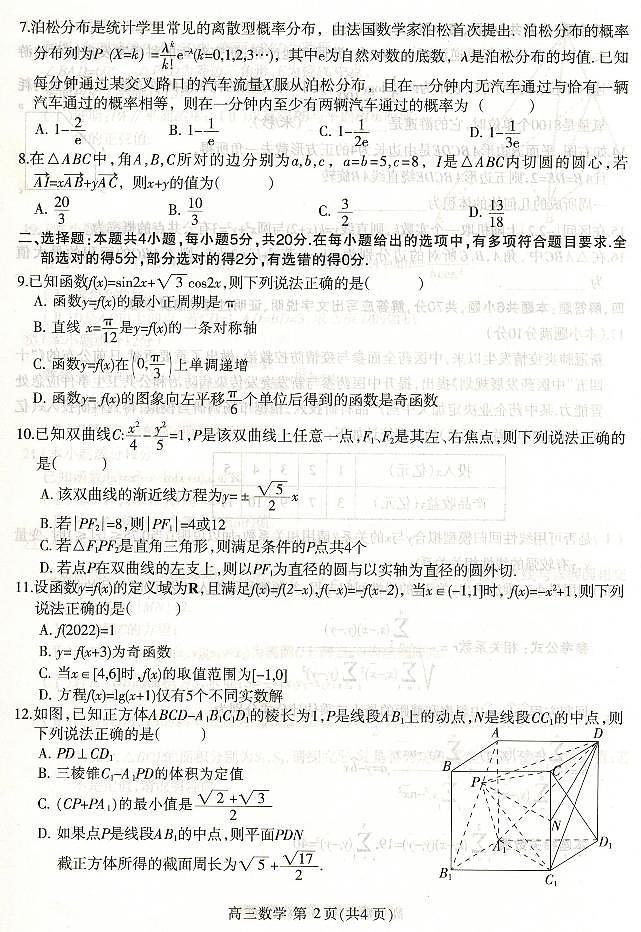 7.泊松分布是统计学里常见的离散型概率分布，由法国数学家泊松首次提出. 泊松分布的概率
分布列为P (X=k) =\frac{λ^k}{k!}e^{-λ}(k=0,1,2,3…)，其中e为自然对数的底数，λ是泊松分布的均值. 已知
每分钟通过某交叉路口的汽车流量X服从泊松分布，且在一分钟内无汽车通过与恰有一辆
汽车通过的概率相等，则在一分钟内至少有两辆汽车通过的概率为 ( )
A. 1-\frac{2}{e} B. 1-\frac{1}{e} C. 1-\frac{1}{2e} D. 1-\frac{1}{3e}
8.在△ABC中，角A,B,C所对的边分别为a,b,c，a=b=5,c=8，I是△ABC内切圆的圆心，若
\overrightarrow{AI}=x\overrightarrow{AB}+y\overrightarrow{AC}，则x+y的值为( )
A. \frac{20}{3} B. \frac{10}{3} C. \frac{3}{2} D. \frac{13}{18}
二、选择题:本题共4小题,每小题5分,共20分.在每小题给出的选项中,有多项符合题目要求.全
部选对的得5分,部分选对的得2分,有选错的得0分.
9.已知函数f(x)=sin2x+√3 cos2x,则下列说法正确的是( )
A. 函数y=f(x)的最小正周期是π
B. 直线 x=\frac{π}{12}是y=f(x)的一条对称轴
C. 函数y=f(x)在[0,\frac{π}{3}]上单调递增
D. 函数y= f(x)的图象向左平移\frac{π}{6}个单位后得到的函数是奇函数
10.已知双曲线C:\frac{x^2}{4}-\frac{y^2}{5}=1,P是该双曲线上任意一点,F₁、F₂是其左、右焦点,则下列说法正确的
是( )
A. 该双曲线的渐近线方程为y=±\frac{√5}{2}x
B. 若|PF₂|=8,则|PF₁|=4或12
C. 若△F₁PF₂是直角三角形,则满足条件的P点共4个
D. 若点P在双曲线的左支上,则以PF₁为直径的圆与以实轴为直径的圆外切.
11.设函数y=f(x)的定义域为R,且满足f(x)=f(2-x),f(-x)=-f(x-2)，当x∈(-1,1]时，f(x)=-x²+1,则下列
说法正确的是( )
A. f(2022)=1
B. y= f(x+3)为奇函数
C. 当x∈[4,6]时,f(x)的取值范围为[-1,0]
D. 方程f(x)=lg(x+1)仅有5个不同实数解
12.如图,已知正方体ABCD-A₁B₁C₁D₁的棱长为1,P是线段AB₁上的动点,N是线段CC₁的中点,则
下列说法正确的是( )
A. PD⊥CD₁
B. 三棱锥C₁-A₁PD的体积为定值
C. (CP+PA₁)的最小值是\frac{√2+√3}{2}
D. 如果点P是线段AB₁的中点,则平面PDN
截正方体所得的截面周长为√5+\frac{√17}{2}.
A
D
B
C
P
N
A₁
D₁
B₁
C₁
高三数学 第 2页(共4 页)